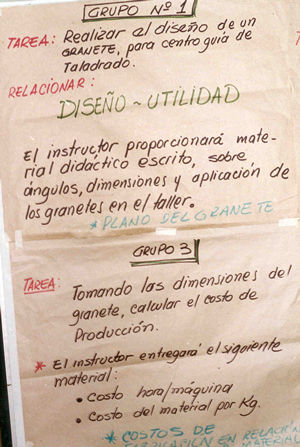 GRUPO Nº 1
TAREA: Realizar el diseño de un
GRANETE, para centro guía de
Taladrado.
RELACIONAR:
DISEÑO ~ UTILIDAD
El instructor proporcionará mate-
rial didáctico escrito, sobre
ángulos, dimensiones y aplicación de
los granetes en el taller.
* PLANO DEL GRANETE
GRUPO 3
TAREA: Tomando las dimensiones del
granete, calcular el costo de
Producción.
* El instructor entregará el siguiente
material:
• Costo hora/máquina
• Costo del material por Kg.
* COSTOS DE
EN RELACIÓN